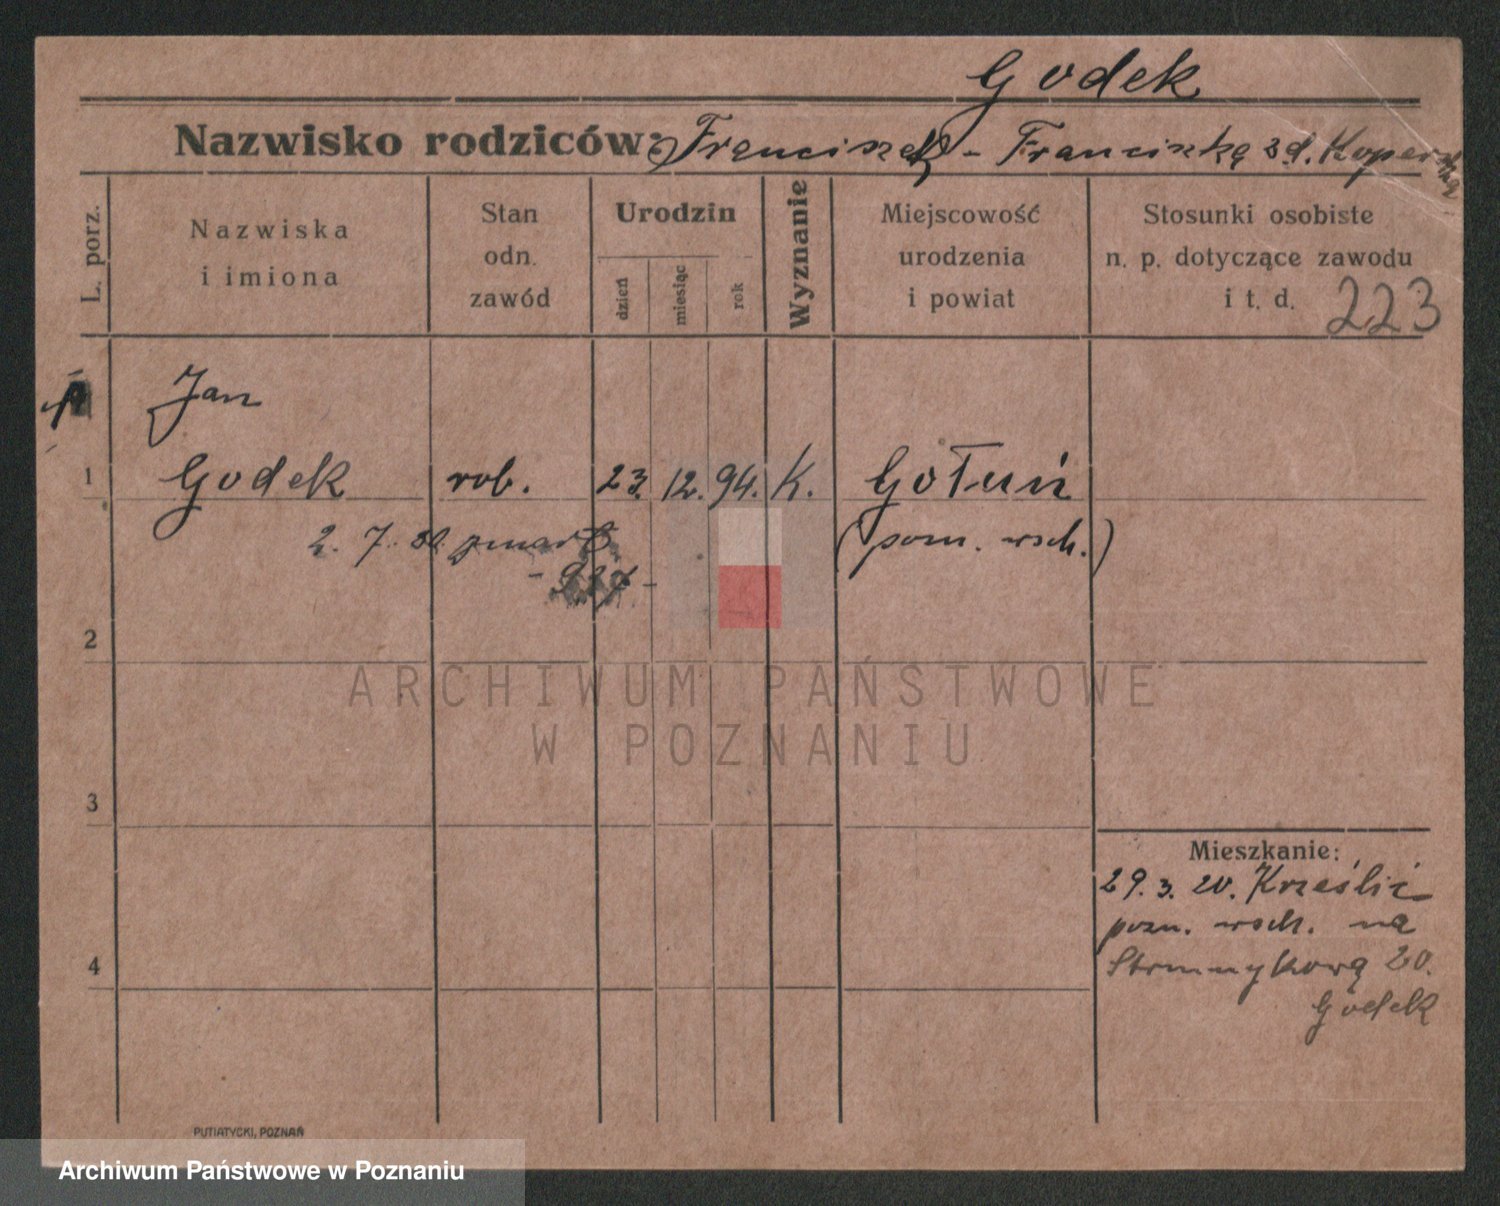 Godek
Nazwisko rodziców: Franciszek - Franciszka zd.
L. porz.
Nazwiska
i imiona
Stan
odn.
zawód
Urodzin
dzień
miesiąc
rok
Wyznanie
Miejscowość
urodzenia
i powiat
Stosunki osobiste
n. p. dotyczące zawodu
i t. d. 223
Jan
1 Godek rob. 23. 12. 94. K. Gołuń
2. 7. zmarł (pozn. wsch.)
2
ARCHIWUM PAŃSTWOWE
W POZNANIU
3
Mieszkanie:
29. 3. 20. Krześlic
pozn. wsch. na
4 Strumykową 20.
Godek
PUTIATYCKI, POZNAŃ
Archiwum Państwowe w Poznaniu